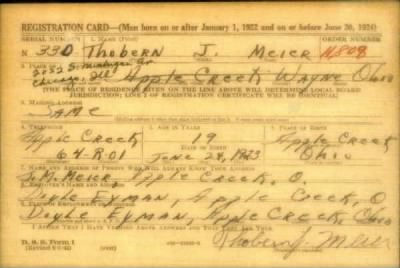 REGISTRATION CARD—(Men born on or after January 1, 1922 and on or before June 30, 1924)
SERIAL NUMBER 1. NAME (Print) ORDER NUMBER
N 330 Thobern J. Meier 11808
2. PLACE OF
Chicago, Ill. Apple Creek Wayne Ohio
[THE PLACE OF RESIDENCE GIVEN ON THE LINE ABOVE WILL DETERMINE LOCAL BOARD
JURISDICTION; LINE 2 OF REGISTRATION CERTIFICATE WILL BE IDENTICAL]
3. MAILING ADDRESS
SAME
4. TELEPHONE 5. AGE IN YEARS 6. PLACE OF BIRTH
Apple Creek 19 Apple Creek
DATE OF BIRTH
64-R-01 June 24, 1923 Ohio
7. NAME AND ADDRESS OF PERSON WHO WILL ALWAYS KNOW YOUR ADDRESS
J. M. Meier, Apple Creek, O.
8. EMPLOYER'S NAME AND ADDRESS
Doyle Eyman, Apple Creek, O
9. PLACE OF EMPLOYMENT OR BUSINESS
Doyle Eyman, Apple Creek, Ohio
I AFFIRM THAT I HAVE VERIFIED ABOVE ANSWERS AND THAT THEY ARE TRUE.
D. S. S. Form 1
Thobern J. Meier